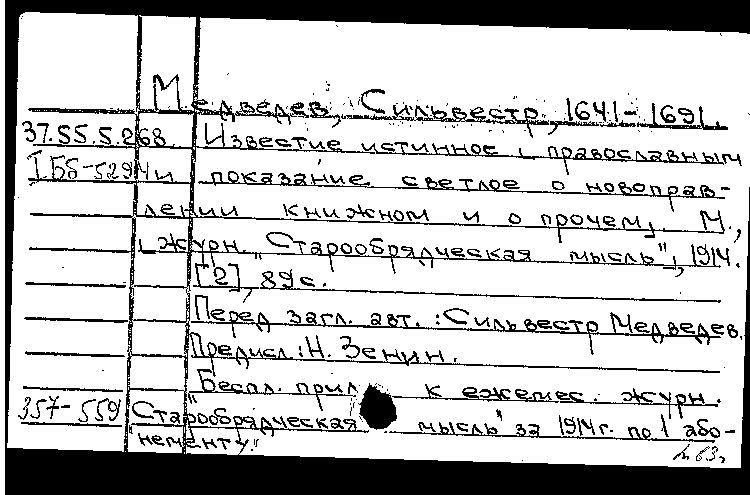 Медведев, Сильвестр, 1641-1691.
37.55.5.268 Известие истинное [православным
I Бб-5294 и показание светлое о новоправ-
лении книжном и о прочем]. М.,
[журн. "Старообрядческая мысль"], 1914.
[2], 89 с.
Перед загл. авт.: Сильвестр Медведев.
Предисл.: Н. Зенин.
"Беспл. прил. к ежемес. журн.
357-559 "Старообрядческая мысль" за 1914 г. по 1 або-
нементу."